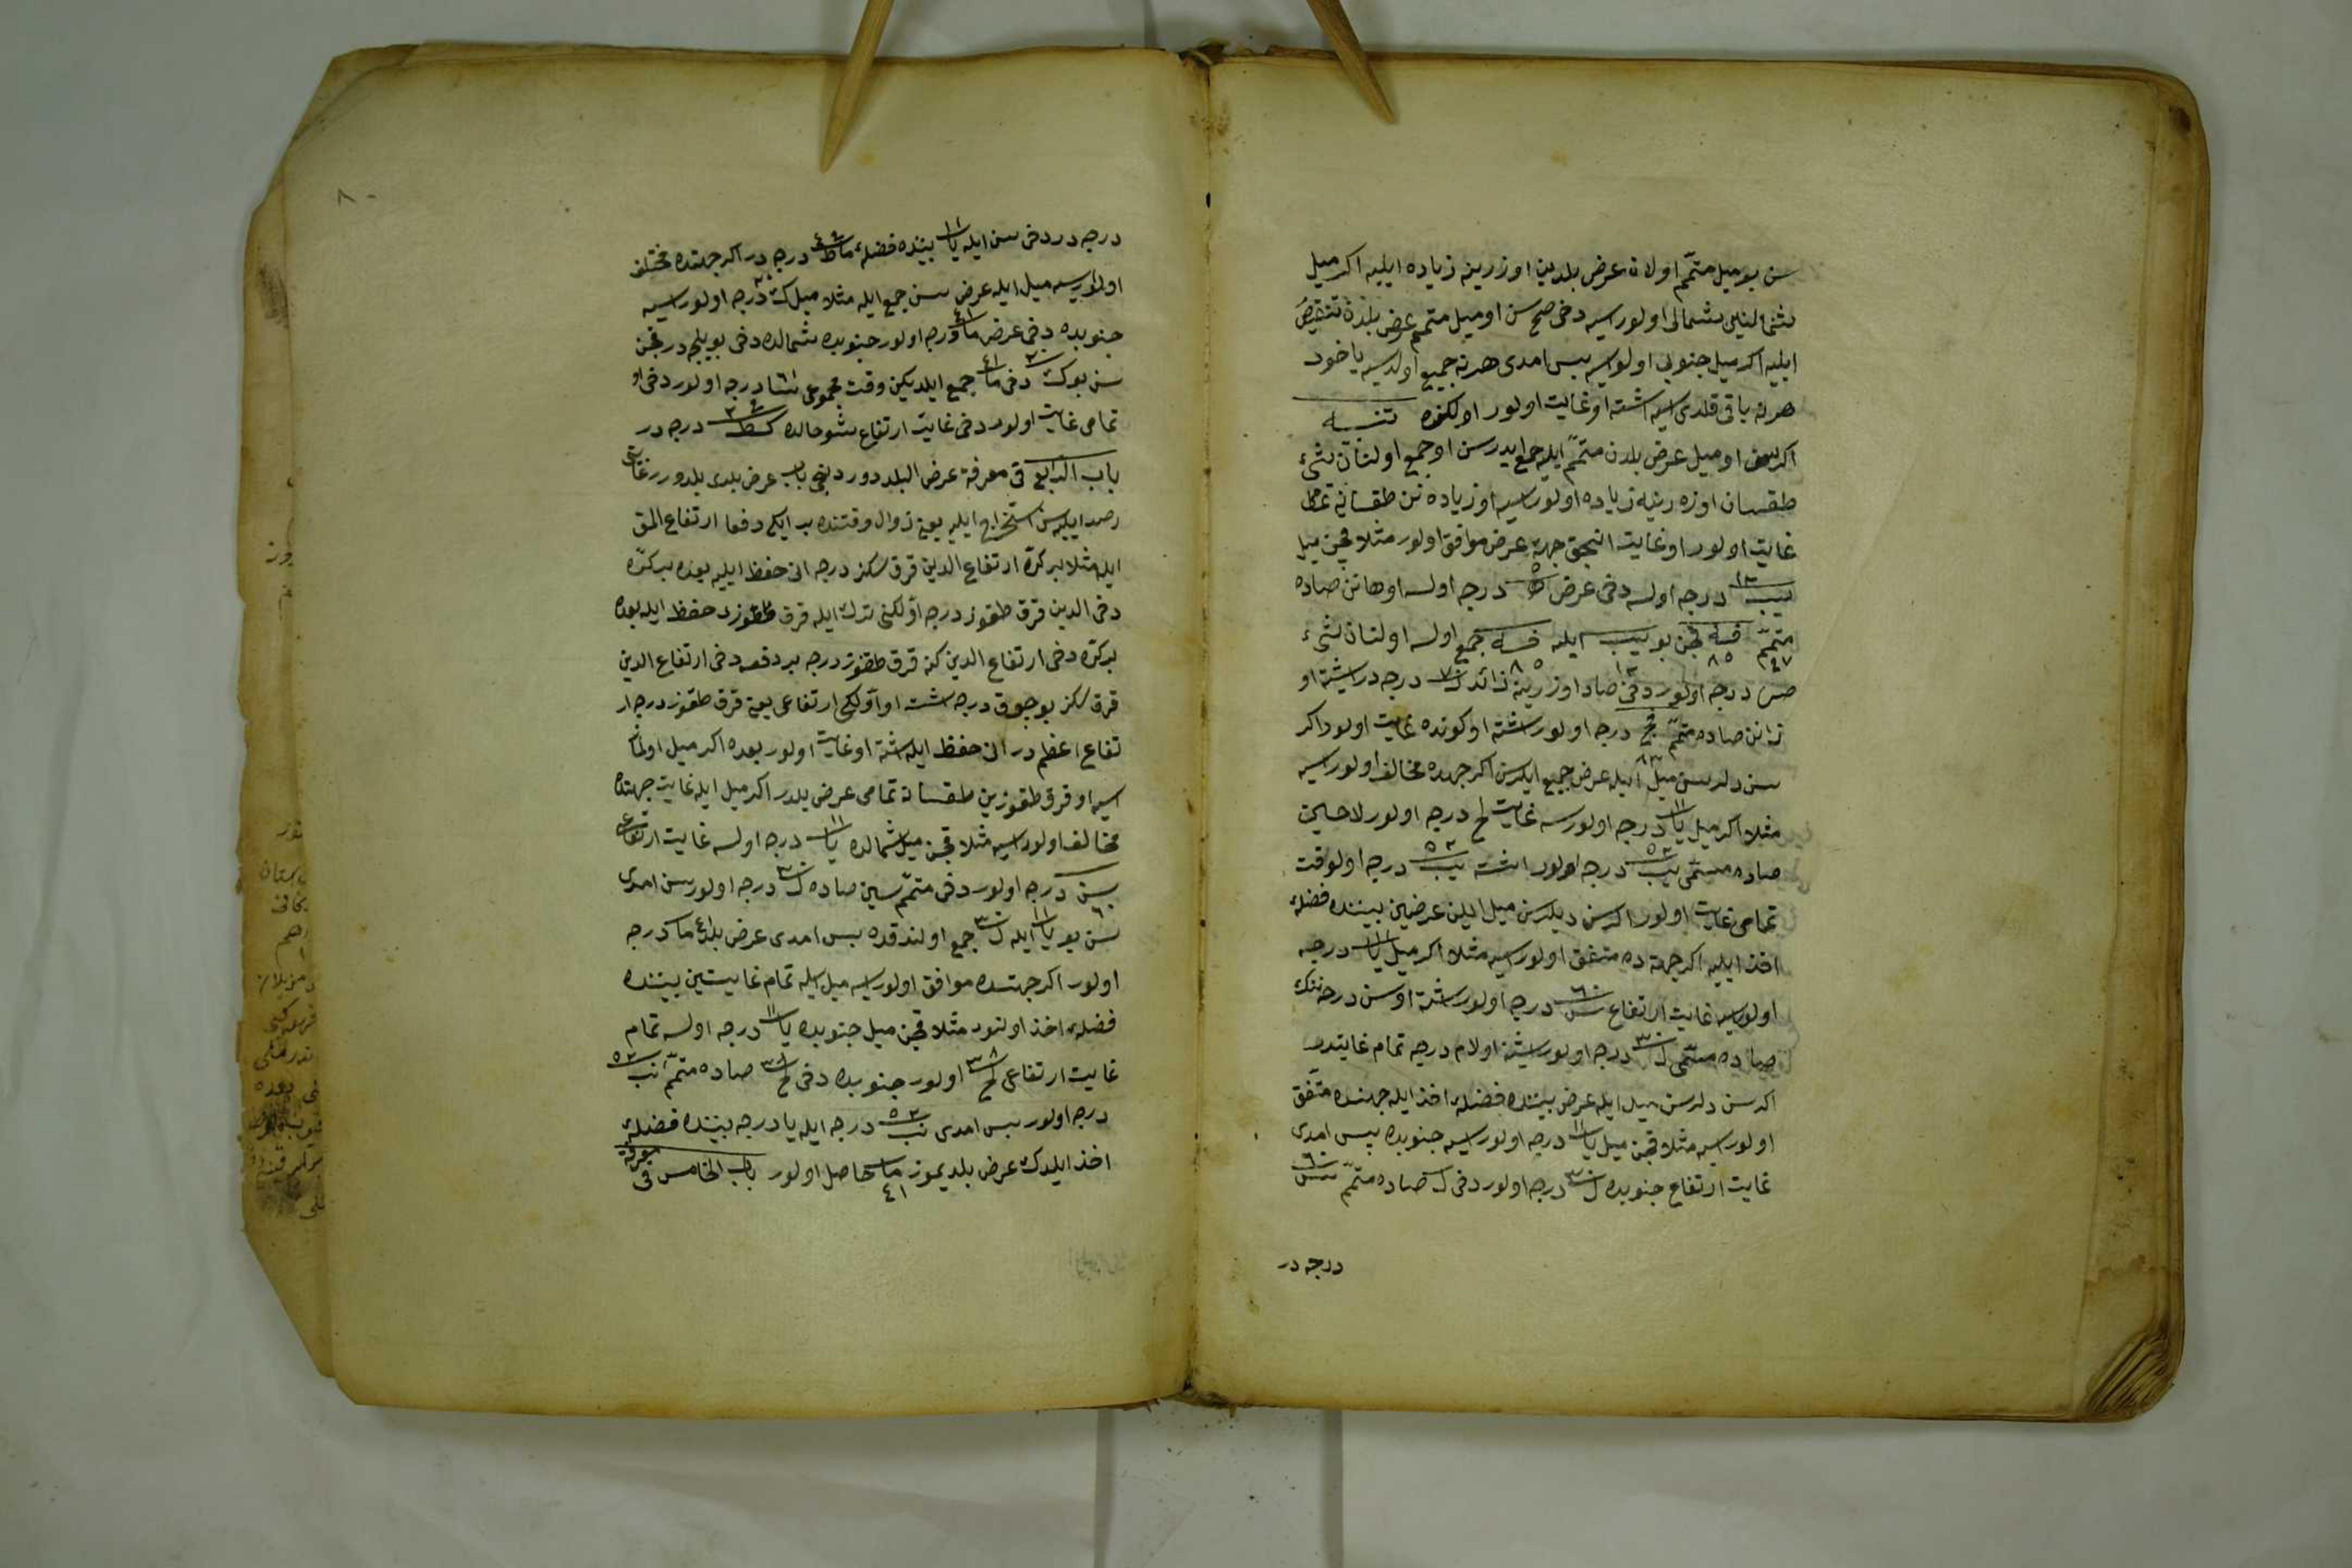 سن بو ميل متمّم اولان عرض بلدين اوزرينه زياده ايليه اكر ميل
شمالينين شمالى اولورسه دخى صح سن او ميل متمم عرض بلدن تنقيص
ايليه اكر ميل جنوبى اولورسه بس امدى هرنه جميع اولديسه ياخود
هرنه باقى قلدى ايسه اشته او غايت اولور اولكنده تنبيه
اكر سن او ميل عرض بلدن متمّم ايله جمع ايدرسن او جمع اولنان شىء
طقسان اوزه رينه زياده اولورسه او زياده نن طقسانه تمامى
غايت اولور او غايت انجق جهة عرض موافق اولور مثلا قچن ميل
يب ١٢ درجه اولسه دخى عرض ه ٥ درجه اولسه اوهانن صاده
متمّم فه ٨٥ قچن بو يب ١٢ ايله فه ٨٥ جمع اولسه اولنان شىء
صز ٩٧ درجه اولور دخى صاد اوزرينه زائد ز ٧ درجه در اشته او
زانن صاده متمّم فج ٨٣ درجه اولور اشته او كونده غايت اولور اكر
سن دلرسن ميل ايله عرض جميع ايلرسن اكر جهده مخالف اولورسه
مثلا اكر ميل يا ١١ درجه اولورسه غايت لح درجه اولور لاحين
صاده متمّى نب ٥٢ درجه اولور اشته نب ٥٢ درجه اولوقت
تمامى غايت اولور اكر سن ديلرسن ميل ايلن عرضين بيننده فضله
اخذ ايليه اكر جهة ده متفق اولورسه مثلا اكر ميل يا ١١ درجه
اولورسه غايت ارتفاع س ٦٠ درجه اولور اشته او سن درجه ننك
صاده متمّى ل ٣٠ درجه اولور اشته اولام درجه تمام غايتدر
اكر سن دلرسن ميل ايله عرض بيننده فضله اخذ ايله جهنده متّفق
اولورسه مثلا قچن ميل يا ١١ درجه اولورسه جنوبده بس امدى
غايت ارتفاع جنوبده ل ٣٠ درجه اولور دخى ل صاده متمّم س ٦٠
درجه در
٨
درجه در دخى سن ايله يا ١١ بيننده فضله مط ٤٩ درجه در اكر جهتده مختلف
اولورسه ميل ايله عرض سن جمع ايله مثلا ميل ك ٢٠ درجه اولورسه
جنوبده دخى عرض ما ٤١ درجه اولور جنوبده شمالده دخى بويلجه در قچن
سن بو ك ٢٠ دخى ما ٤١ جمع ايلديكن وقت مجموعى سا ٦١ درجه اولور دخى او
تمامى غايت اولور دخى غايت ارتفاع شو حالده كط ٢٩ درجه در
باب الرابع فى معرفة عرض البلد دور دنجى باب عرض بلدى بلدورر غايتى
رصد ايليه سن استخراج ايليه يعنى زوال وقتنده بر ايكى دفعا ارتفاع المق
ايله مثلا بر كرّه ارتفاع الدين قرق سكز درجه انى حفظ ايليه بعده بر كرّه
دخى الدين قرق طقوز درجه اوّلكنى ترك ايله قرق طقوز حفظ ايله بعده
بر كرّه دخى ارتفاع الدين كنه قرق طقوز درجه بر دفعه دخى ارتفاع الدين
قرق سكز بوجوق درجه اشته او اوّلكى ارتفاعى يعنى قرق طقوز درجه ار
تفاع اعظم در انى حفظ ايله اشته او غايت اولور بعده اكر ميل اولمـ
ـسه او قرق طقوزين طقسانه تمامى عرض بلدر اكر ميل ايله غايت جهتده
مخالف اولورسه مثلا قچن ميل شمالده يا ١١ درجه اولسه غايت ارتفاع
س ٦٠ درجه اولور دخى متمّم سين صاده ل ٣٠ درجه اولور سن امدى
سن بو يا ١١ ايله ل ٣٠ جمع اولندقده بس امدى عرض بلد ما ٤١ درجه
اولور اكر جهتده موافق اولورسه ميل ايله تمام غايتين بيننده
فضله اخذ اولنور مثلا قچن ميل جنوبده يا ١١ درجه اولسه تمام
غايت ارتفاعى لح ٣٨ اولور جنوبده دخى لح ٣٨ صاده متمّم نب ٥٢
درجه اولور بس امدى نب ٥٢ درجه ايله يا درجه بيننده فضله
اخذ ايلدك عرض بلديموز ما ٤١ حاصل اولور باب الخامس فى معرفة